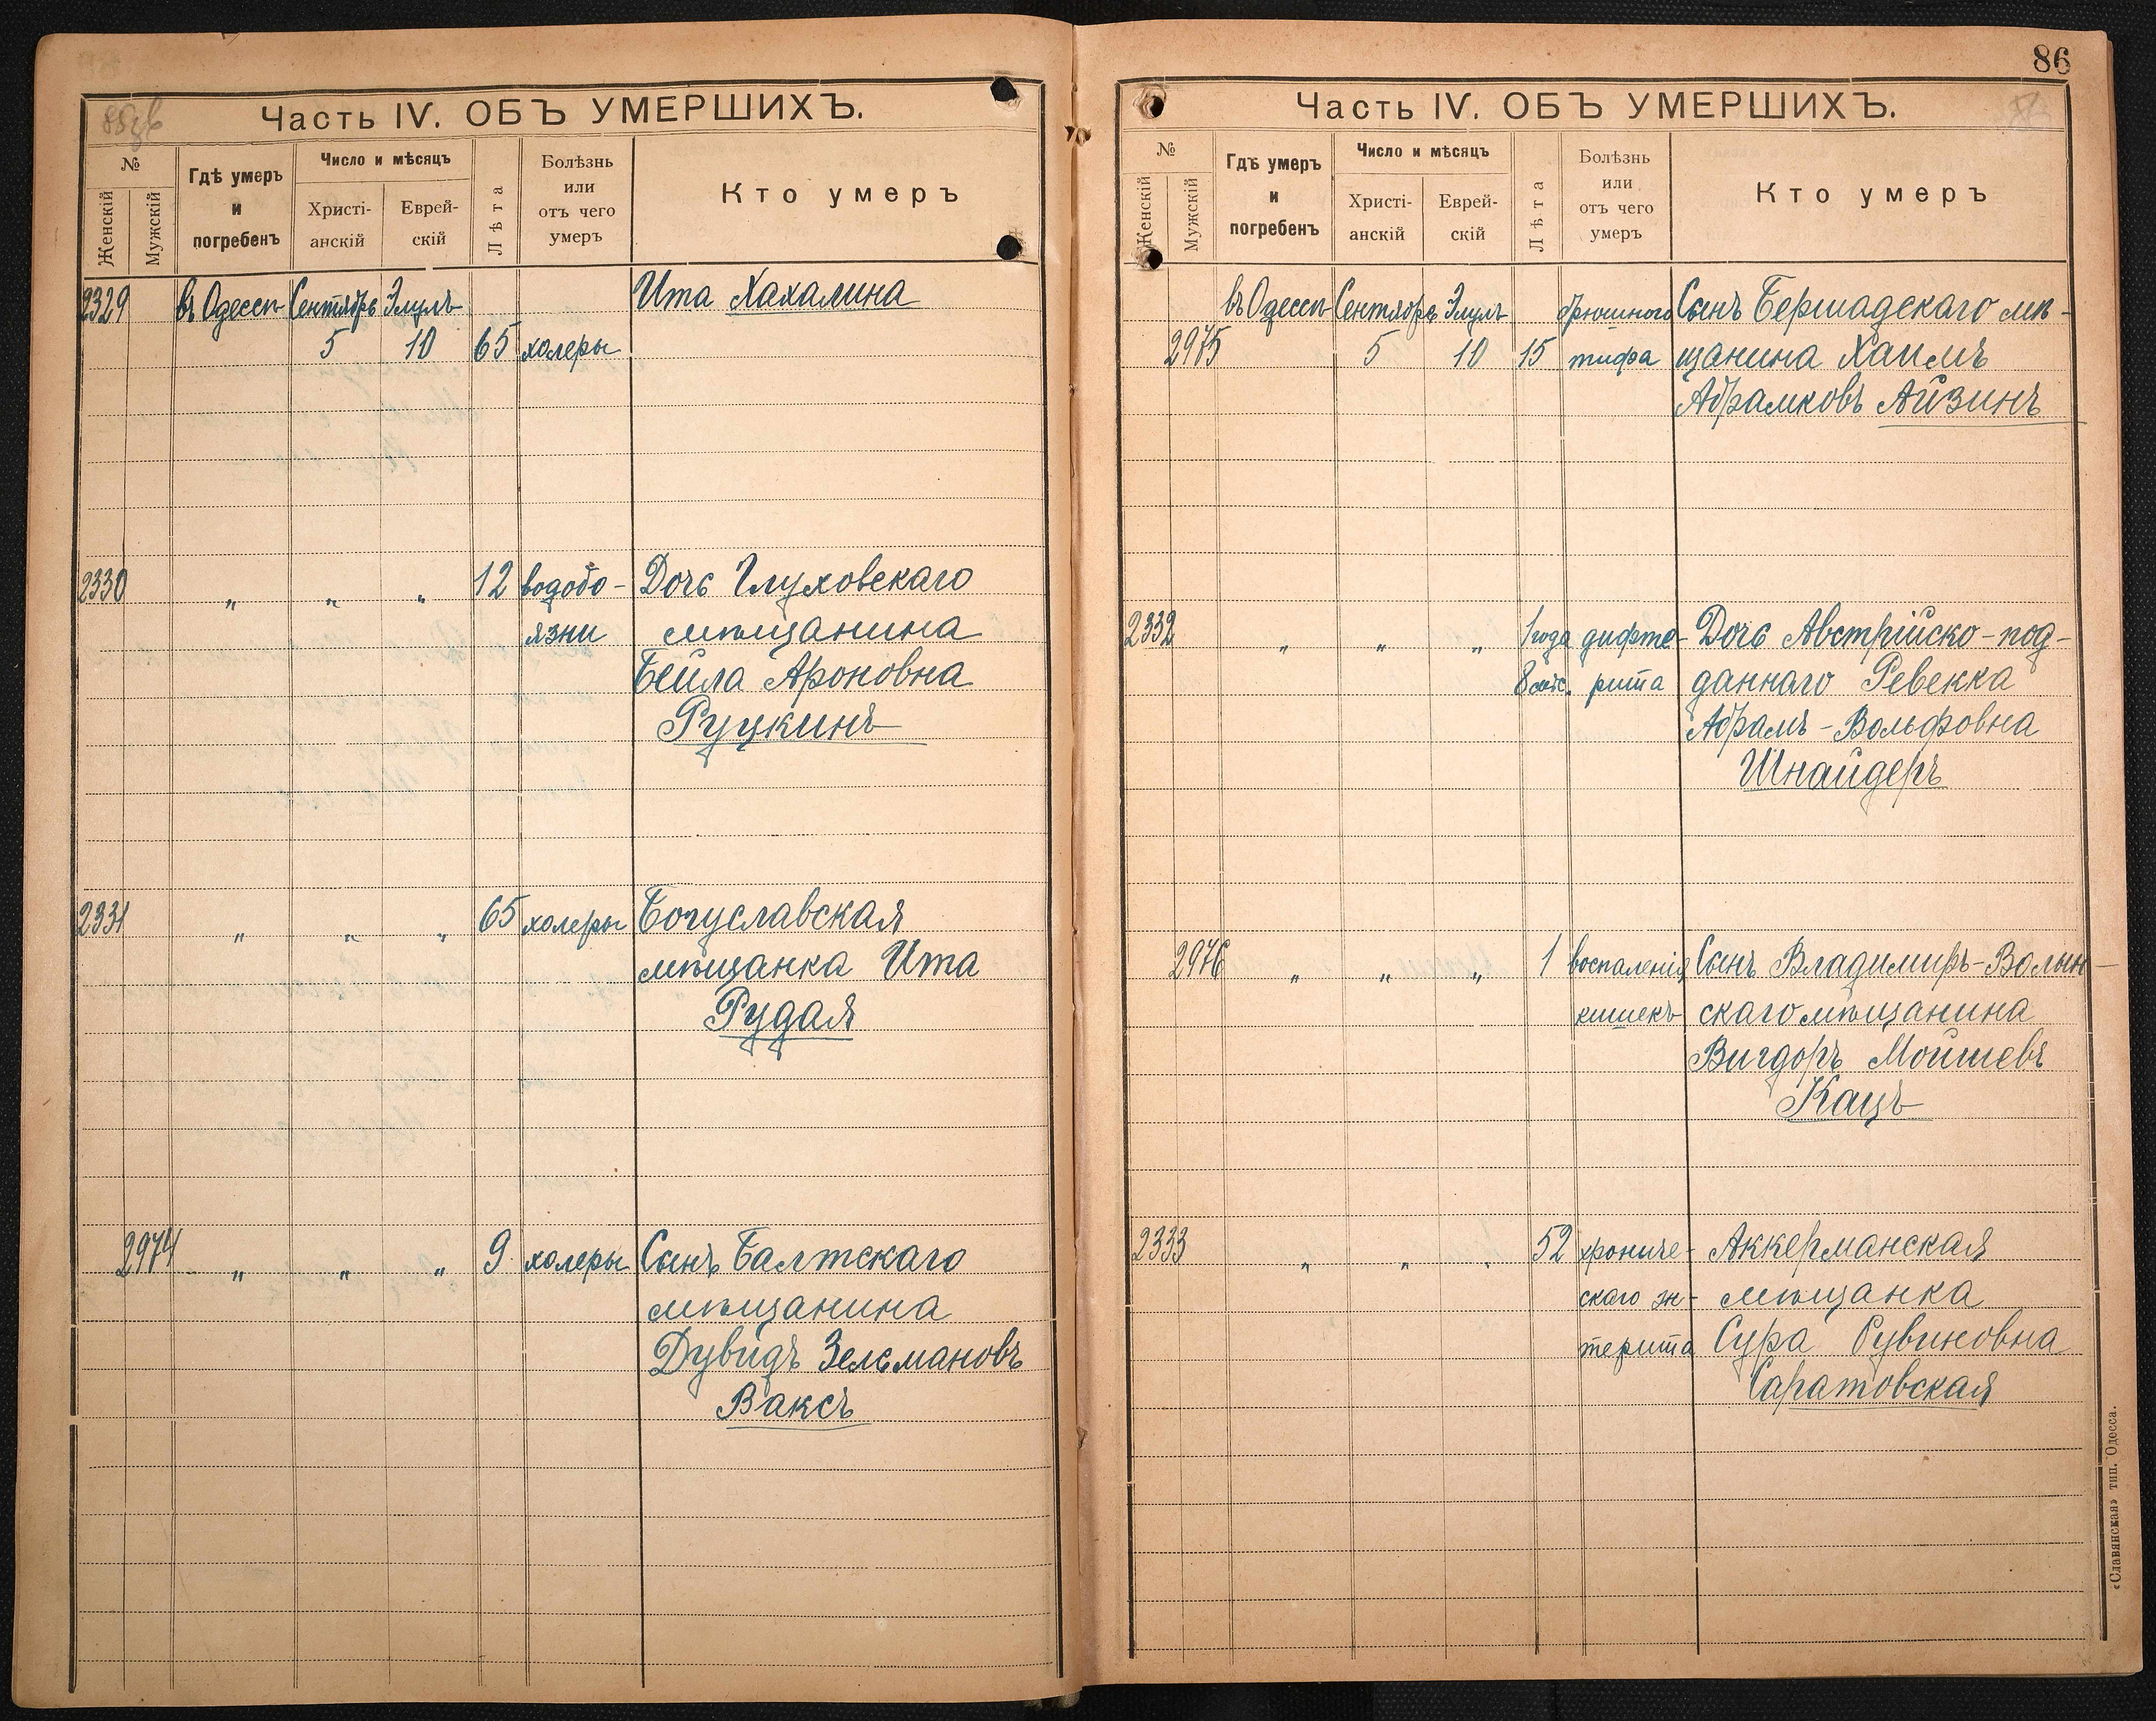 Часть IV. ОБЪ УМЕРШИХЪ.
№
Женскій
Мужскій
Гдѣ умеръ
и
погребенъ
Число и мѣсяцъ
Христі-
анскій
Еврей-
скій
Лѣта
Болѣзнь
или
отъ чего
умеръ
Кто умеръ
2329 въ Одессѣ Сентябрь Элулъ Ита Хахалина
5 10 65 холеры
2330 " " " 12 водобо- Дочь Глуховскаго
язни мѣщанина
Бейла Ароновна
Руцкинъ
2331 " " " 65 холеры Богуславская
мѣщанка Ита
Рудая
2974 " " " 9 холеры Сынъ Балтскаго
мѣщанина
Дувидъ Зельмановъ
Ваксъ
86
Часть IV. ОБЪ УМЕРШИХЪ.
№
Женскій
Мужскій
Гдѣ умеръ
и
погребенъ
Число и мѣсяцъ
Христі-
анскій
Еврей-
скій
Лѣта
Болѣзнь
или
отъ чего
умеръ
Кто умеръ
въ Одессѣ Сентябрь Элулъ брюшного Сынъ Бершадскаго мѣ-
2975 5 10 15 тифа щанина Хаимъ
Абрамковъ Айзинъ
2332 " " " 1 года дифте- Дочь Австрійско-под-
8 мѣс. рита даннаго Ревекка
Абрамъ-Вольфовна
Шнайдеръ
2976 " " " 1 воспаленія Сынъ Владимиръ-Волын-
кишекъ скаго мѣщанина
Вигдоръ Мойшевъ
Кацъ
2333 " " " 52 хрониче- Аккерманская
скаго эн- мѣщанка
терита Сура Рувиновна
Саратовская
«Славянская» тип. Одесса.